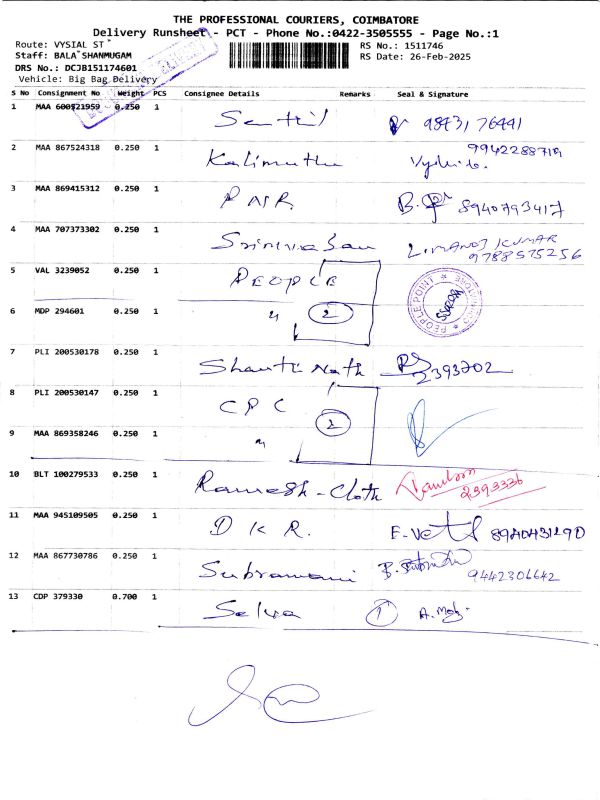 THE PROFESSIONAL COURIERS, COIMBATORE
Delivery Runsheet - PCT - Phone No.:0422-3505555 - Page No.:1
Route: VYSIAL ST RS No.: 1511746
Staff: BALA SHANMUGAM RS Date: 26-Feb-2025
DRS No.: DCJB151174601
Vehicle: Big Bag Delivery
S No Consignment No Weight PCS Consignee Details Remarks Seal & Signature
1 MAA 600921959 0.250 1 Senthil 98431 76441
2 MAA 867524318 0.250 1 Kalimuthu 9942288719
3 MAA 869415312 0.250 1 PNR 8940793417
4 MAA 707373302 0.250 1 Srinivasan L.MANOJ KUMAR
9788575256
5 VAL 3239052 0.250 1 PEOPLE
PEOPLE POINT COIMBATORE
6 MDP 294601 0.250 1 " 2
7 PLI 200530178 0.250 1 Shanti Nath 2393702
8 PLI 200530147 0.250 1 CPC
2
9 MAA 869358246 0.250 1 "
10 BLT 100279533 0.250 1 Ramesh-Cloth
2393336
11 MAA 945109505 0.250 1 DKR.
12 MAA 867730786 0.250 1 Subramani 9442306642
13 CDP 379330 0.700 1 Selva 1